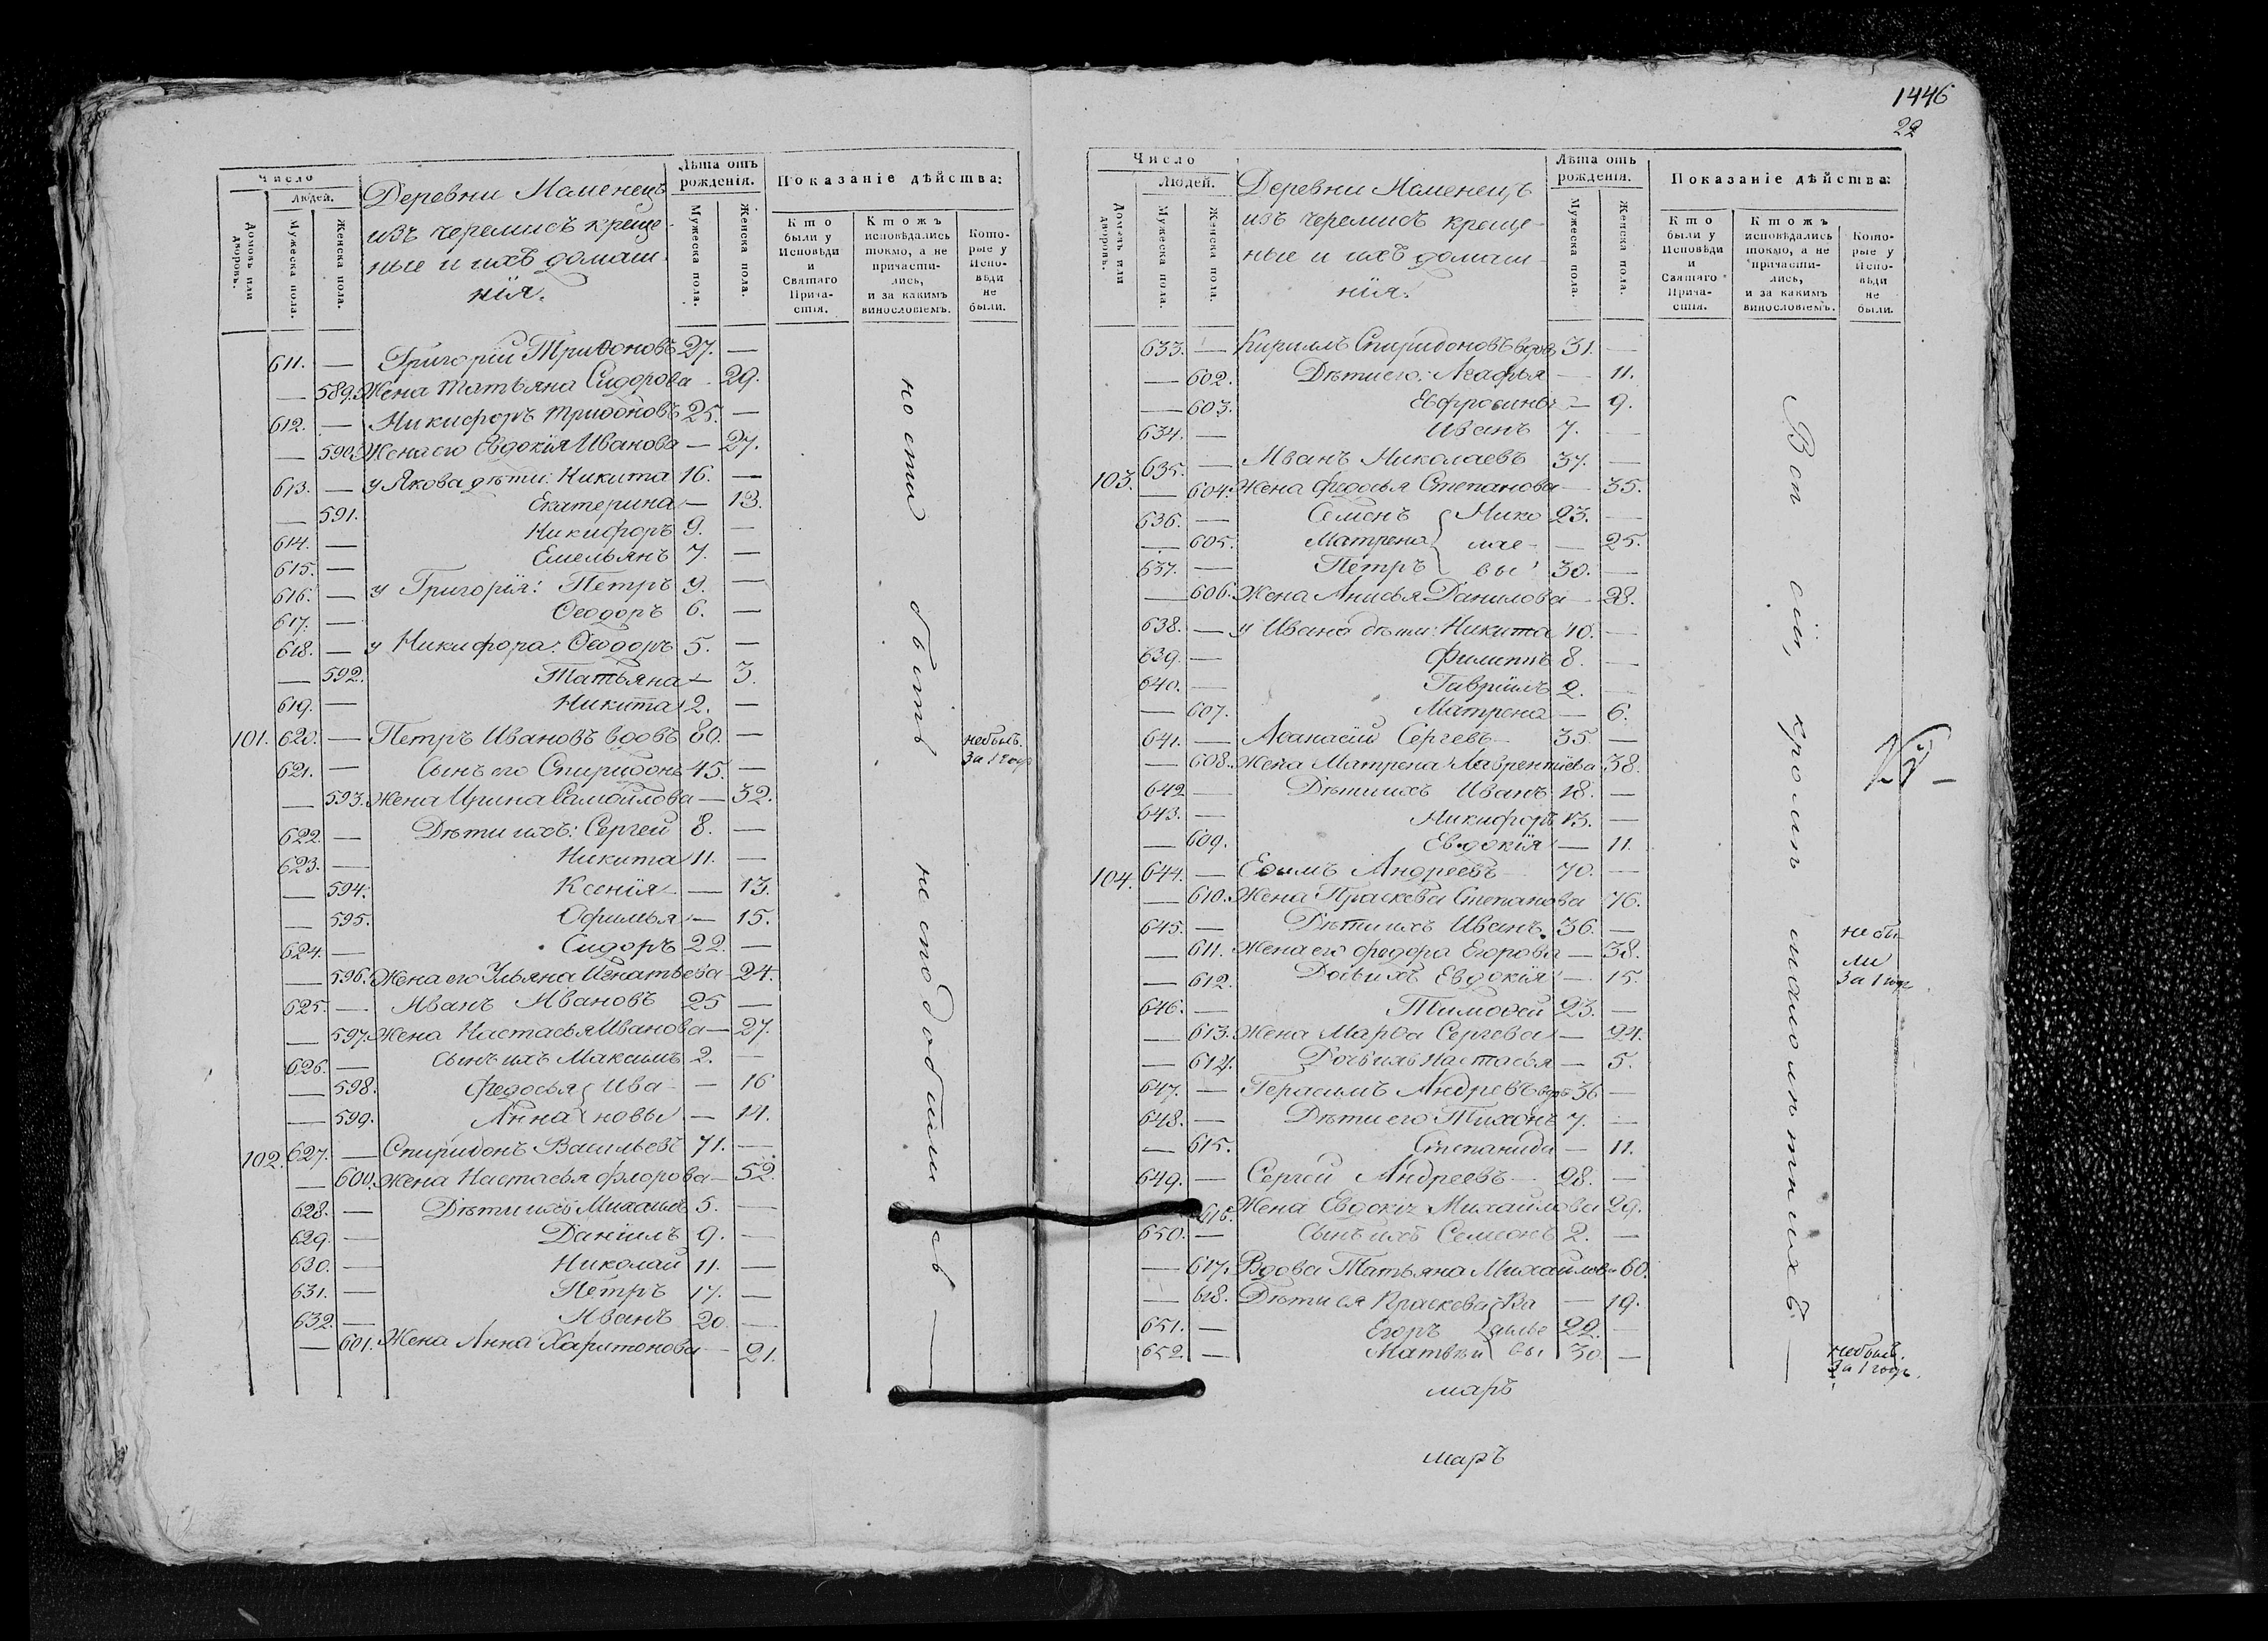 1446
22
Число
Людей.
Домовъ или дворовъ.
Мужеска пола.
Женска пола.
Деревни Маменецъ
изъ черемисъ креще-
ные и ихъ домаш-
нія.
Лѣта отъ рожденія.
Мужеска пола.
Женска пола.
Показаніе дѣйства:
Кто были у Исповѣди и Святаго Прича-стія.
Ктожъ исповѣдались токмо, а не причасти-лись, и за какимъ винословіемъ.
Кото-рые у Испо-вѣди не были.
611. — Григорій Триѳоновъ 27. —
— 589. Жена Татьяна Сидорова - 29.
612. — Никифоръ Триѳоновъ 25. —
— 590. Жена его Евдокія Иванова — 27.
613. — у Якова дѣти: Никита 16. —
— 591. Екатерина — 13.
614. — Никифоръ 9. —
615. — Емельянъ 7. —
616. — у Григорія: Петръ 9. —
617. — Ѳеодоръ 6. —
618. — у Никифора: Ѳеодоръ 5. —
— 592. Татьяна — 3.
619. — Никита 2. —
101. 620. — Петръ Ивановъ вдовъ 80. — небылъ. За 1 годъ
621. — Сынъ его Спиридонъ 45. —
— 593. Жена Ирина Самойлова — 32.
622. — Дѣти ихъ: Сергей 8. —
623. — Никита 11. —
— 594. Ксенія — 13.
— 595. Офимья — 15.
624. — Сидоръ 22. —
— 596. Жена его Ульяна Игнатьева — 24.
625. — Иванъ Ивановъ 25 —
— 597. Жена Настасья Иванова — 27.
626. — Сынъ ихъ Максимъ 2. —
— 598. Федосья { Ива- — 16
— 599. Анна { новы — 14.
102. 627. — Спиридонъ Васильевъ 71. —
— 600. Жена Настасья Флорова — 52.
628. — Дѣти ихъ Михаилъ 5. —
629. — Даніилъ 9. —
630. — Николай 11. —
631. — Петръ 17. —
632. — Иванъ 20. —
— 601. Жена Анна Харитонова — 21.
Число
Людей.
Домовъ или дворовъ.
Мужеска пола.
Женска пола.
Деревни Маменецъ
изъ черемисъ креще-
ные и ихъ домаш-
нія.
Лѣта отъ рожденія.
Мужеска пола.
Женска пола.
Показаніе дѣйства:
Кто были у Исповѣди и Святаго Прича-стія.
Ктожъ исповѣдались токмо, а не причасти-лись, и за какимъ винословіемъ.
Кото-рые у Испо-вѣди не были.
633. — Кириллъ Спиридоновъ вдовъ 31. —
— 602. Дѣти его: Агафья — 11.
— 603. Евфросинья — 9.
634. — Иванъ 7. —
103. 635. — Иванъ Николаевъ 37. —
— 604. Жена Федосья Степанова — 35.
636. — Семенъ { Нико 23. —
— 605. Матрена { лае- — 25.
637. — Петръ { вы 30. —
— 606. Жена Анисья Данилова — 28.
638. — у Ивана дѣти: Никита 10. —
639. — Филиппъ 8. —
640. — Гавріилъ 2. —
— 607. Матрена — 6.
641. — Аѳанасій Сергевъ 35. —
— 608. Жена Матрена Лаврентіева 38.
642 — Дѣти ихъ Иванъ 18. —
643. — Никифоръ 13. —
— 609. Евдокія — 11.
104. 644. — Едымъ Андреевъ 70. —
— 610. Жена Праскева Степанова 76.
645. — Дѣти ихъ Иванъ 36. — не бы
— 611. Жена его Федора Егорова — 38. ли
— 612. Дочь ихъ Евдокія — 15. За 1 годъ
646. — Тимоѳей 23. —
— 613. Жена Марѳа Сергева — 24.
— 614. Дочь ихъ Настасья — 5.
647. — Герасимъ Андревъ вдовъ 36 —
648. — Дѣти его Тихонъ 7. —
— 615. Степанида — 11.
649. — Сергей Андреевъ 28. —
616. Жена Евдокія Михайлова 29.
650. — Сынъ ихъ Семеонъ 2. —
— 617. Вдова Татьяна Михайлова 60.
— 618. Дѣти ея Праскева { Ва — 19.
651. — Егоръ { силье 22. —
652. — Матвѣй { вы 30 — небылъ. За 1 годъ
Всѣ сіи, кромѣ
марѣ
марѣ